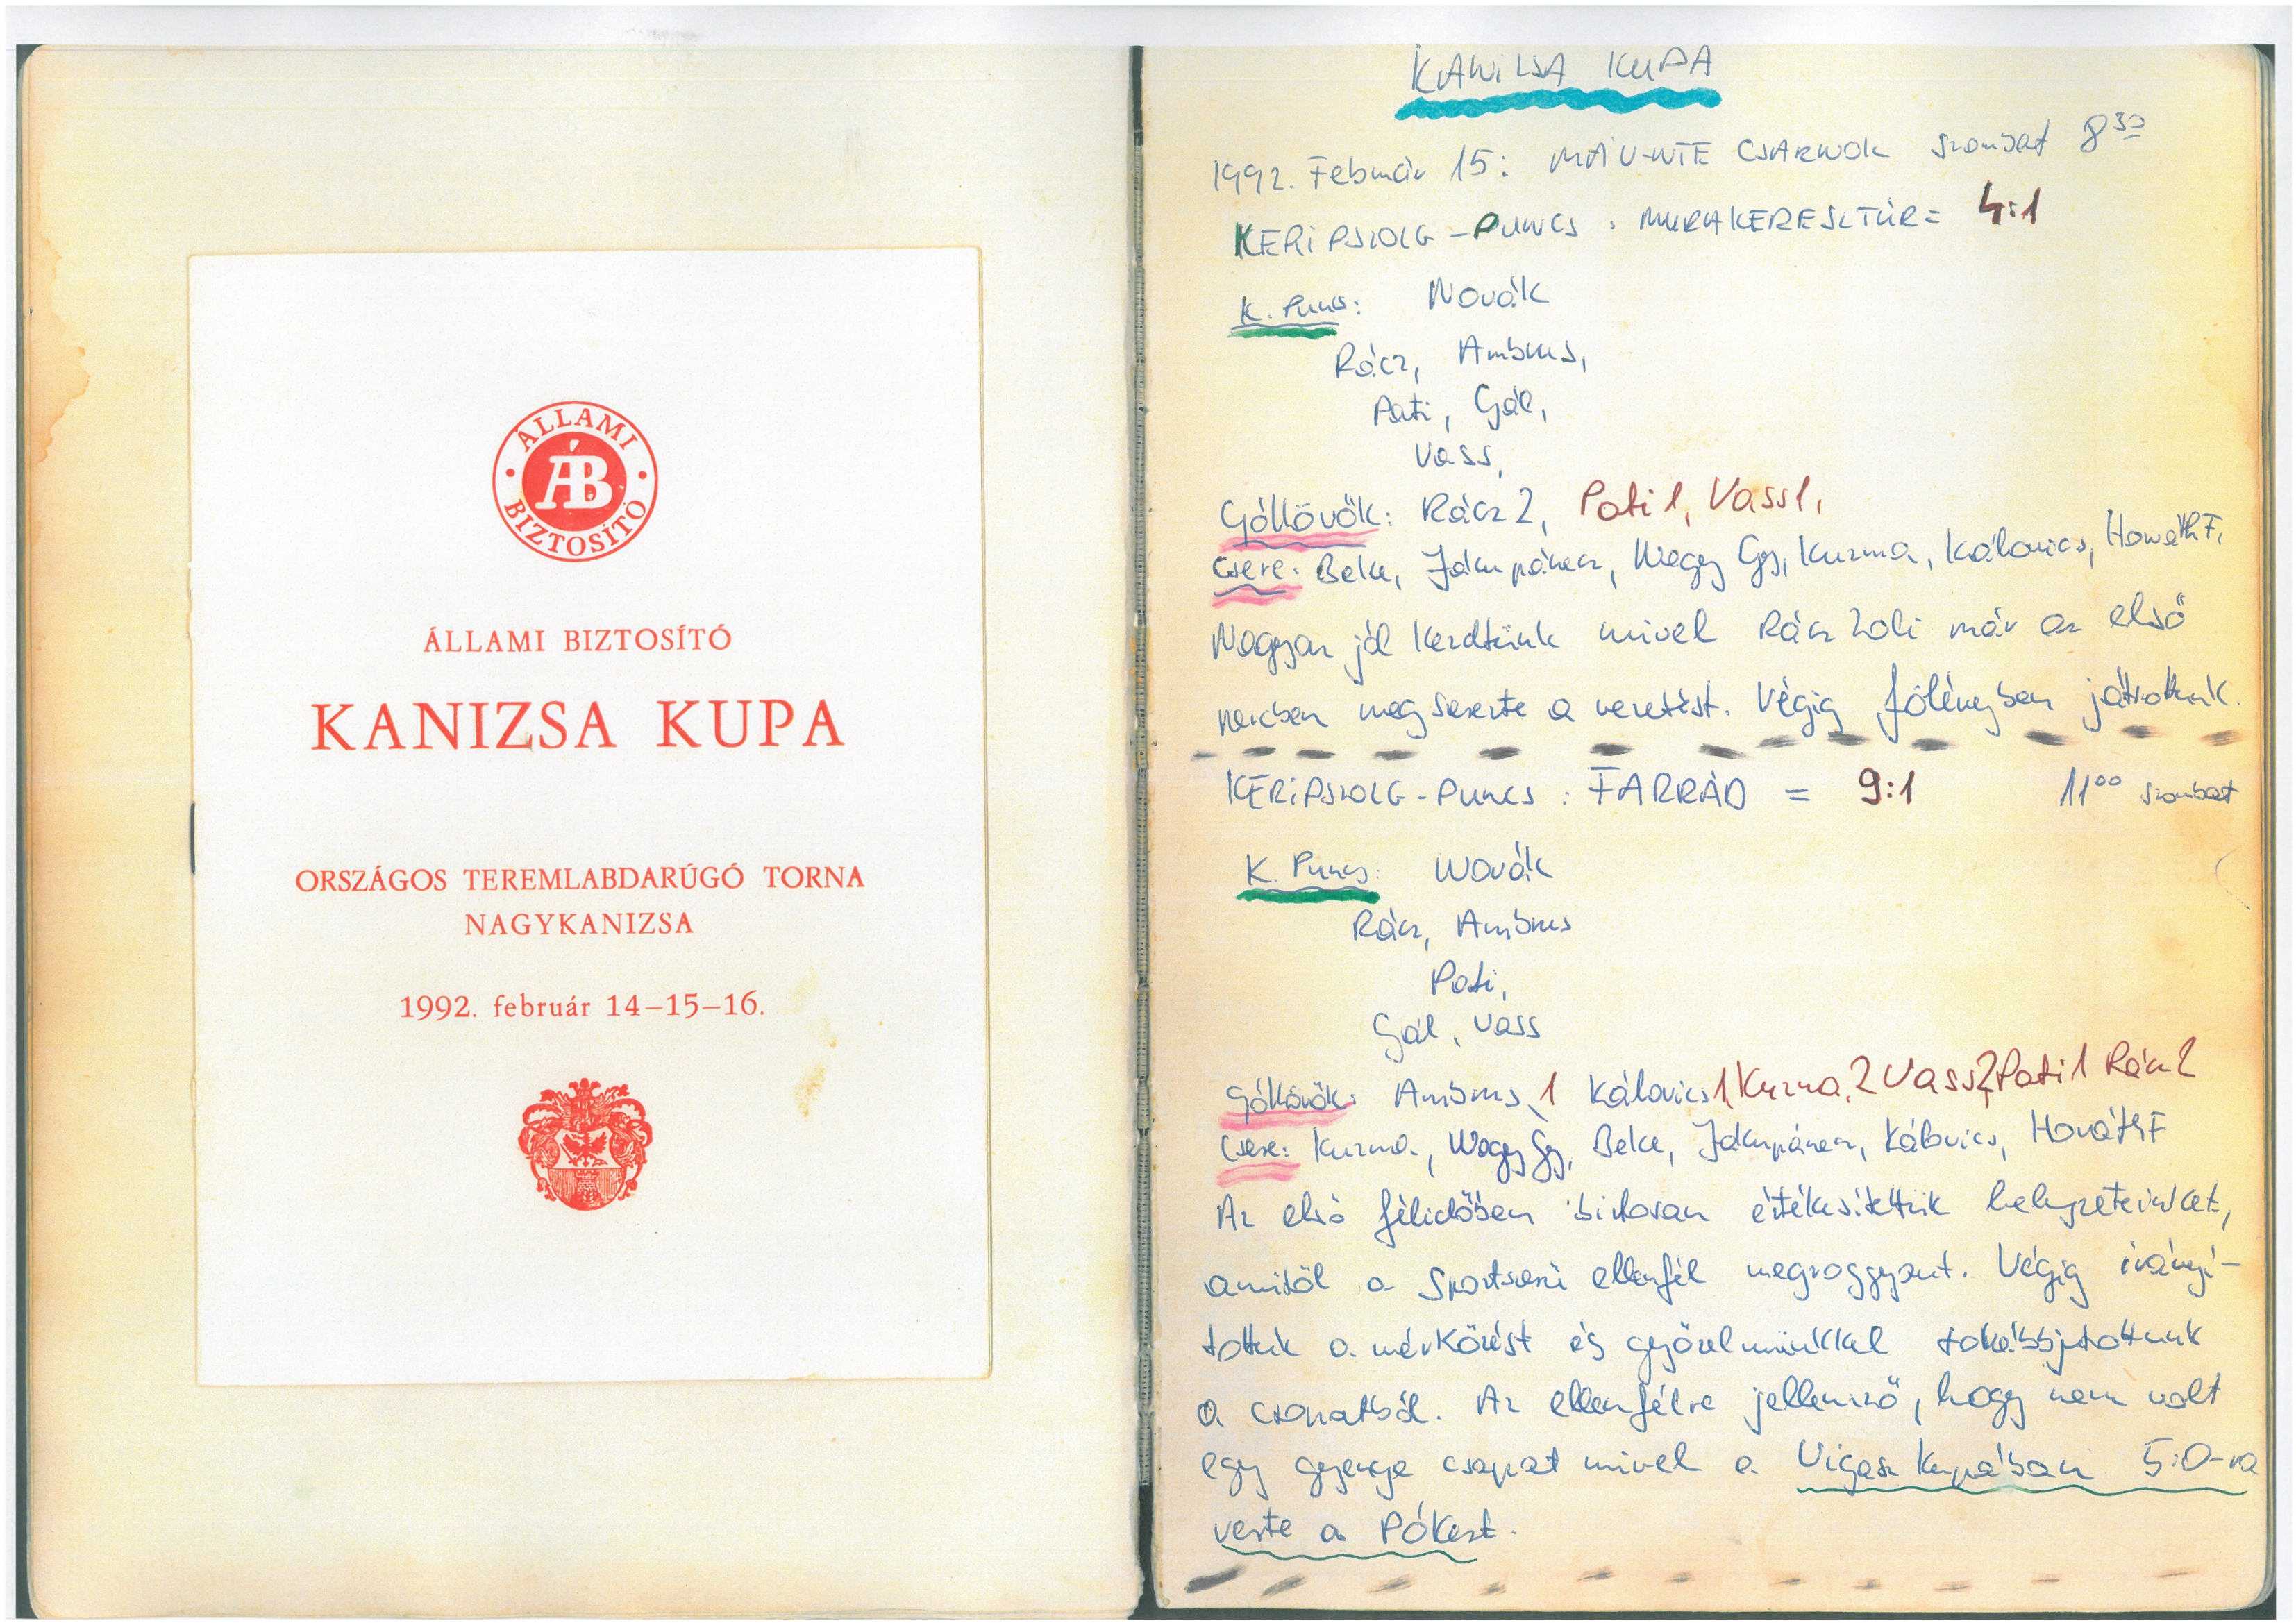 ÁLLAMI
ÁB
BIZTOSÍTÓ
ÁLLAMI BIZTOSÍTÓ
KANIZSA KUPA
ORSZÁGOS TEREMLABDARÚGÓ TORNA
NAGYKANIZSA
1992. február 14–15–16.
KANIZSA KUPA
1992. Február 15: MÁV-NTE CSARNOK szombat 8 30
KERIPSZOLG - PUNCS : MURAKERESZTÚR = 4:1
K. Puncs: Novák
Rácz, Ambrus,
Pati, Gál,
Vass,
Góllövők: Rácz 2, Pati 1, Vass 1,
Csere: Beke, Jakupánecz, Nagy Gy, Kuzma, Kálovics, Horváth F,
Nagyon jól kezdtünk mivel Rácz Zoli már az első
percben megszerezte a vezetést. Végig fölényben játszottunk.
KERIPSZOLG - PUNCS : FARRÁD = 9:1 11 00 szombat
K. Puncs: Novák
Rácz, Ambrus
Pati,
Gál, Vass
Góllövők: Ambrus 1 Kálovics 1, Kuzma 2 Vass 2 Pati 1 Rácz 2
Csere: Kuzma, Nagy Gy, Beke, Jakupánecz, Kálovics, Horváth F
Az első félidőben biztosan értékesítettük helyzeteinket,
amitől a Sportszerű ellenfél megroggyant. Végig irányí-
tottuk a mérkőzést és győzelmünkkel továbbjutottunk
a csoportból. Az ellenfélre jellemző, hogy nem volt
egy gyenge csapat mivel a Vigasz kupában 5:0-ra
verte a Pókert.